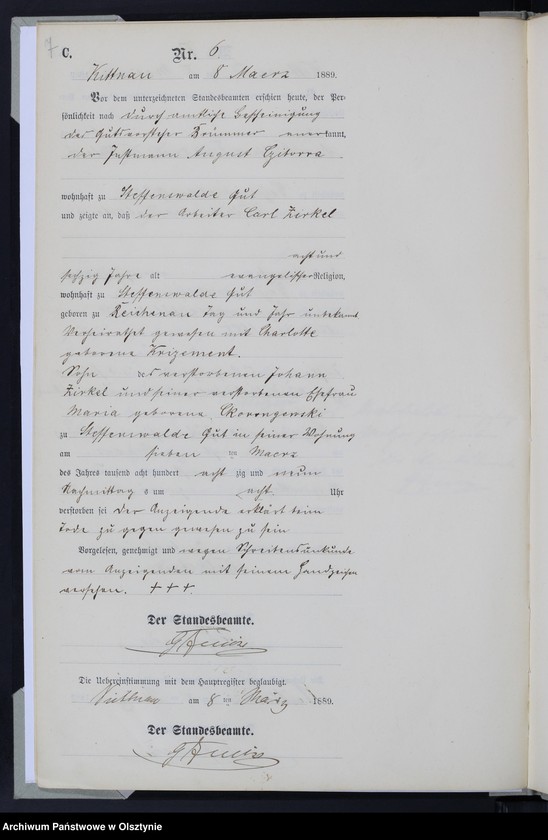 7
C.
Nr. 6
Kittnau am 8 Maerz 1889.
Vor dem unterzeichneten Standesbeamten erschien heute, der Per-
sönlichkeit nach durch amtliche Bescheinigung
des Gutsvorsteher Brümmer anerkannt,
der Instmann August Czitorra
wohnhaft zu Steffenswalde Gut
und zeigte an, daß der Arbeiter Carl Zirkel
acht und
sechzig Jahre alt evangelischer Religion,
wohnhaft zu Steffenswalde Gut
geboren zu Reichenau Tag und Jahr unbekannt
Verheirathet gewesen mit Charlotte
geborene Krizement.
Sohn des verstorbenen Johann
Zirkel und seiner verstorbenen Ehefrau
Maria geborene Skorongewski
zu Steffenswalde Gut in seiner Wohnung
am sieben ten Maerz
des Jahres tausend acht hundert acht zig und neun
Nachmittag s um acht Uhr
verstorben sei der Anzeigende erklärt beim
Tode zu gegen gewesen zu sein
Vorgelesen, genehmigt und wegen Schreibensunkunde
vom Anzeigenden mit seinem Handzeichen
versehen. + + +.
Der Standesbeamte.
Die Uebereinstimmung mit dem Hauptregister beglaubigt.
am 8 ten März 1889.
Der Standesbeamte.
Archiwum Państwowe w Olsztynie